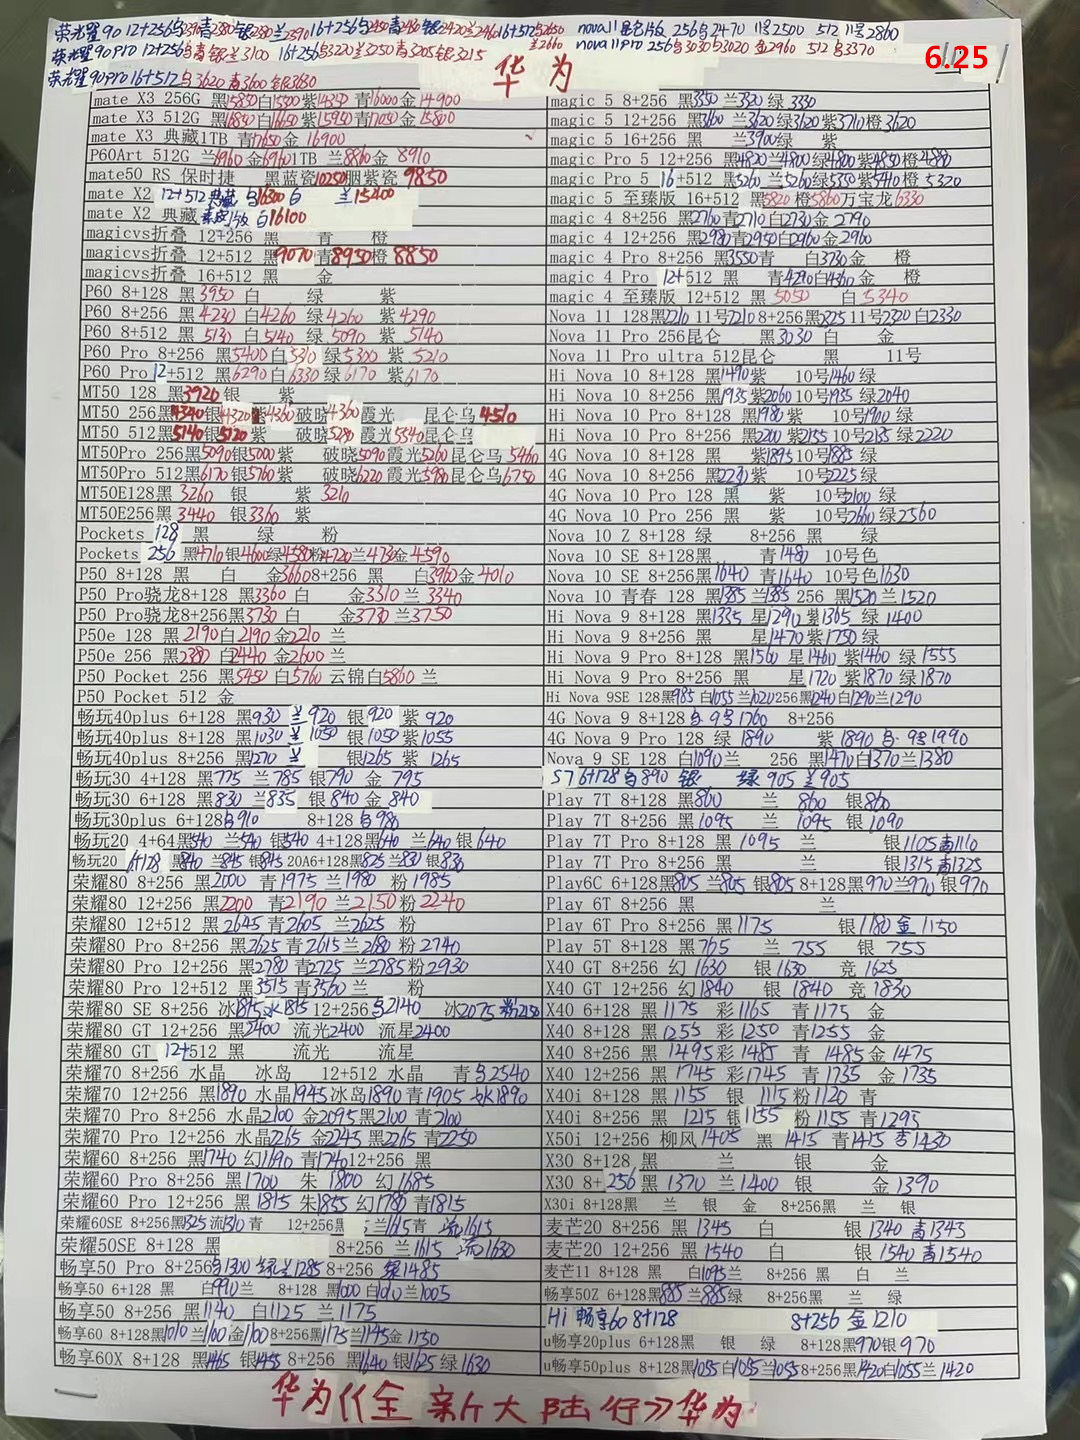 荣耀90 12+256乌2390青2380银2380兰2390 16+256乌2450青2460银2420兰2460 16+512乌2650 兰2660
nova11 昆仑版 256乌2470 11号2500 512 11号2860
荣耀90pro 12+256乌青银兰3100 16+256乌3220兰3250青3205银3215
nova11pro 256乌3030乌3020金2960 512乌3370
6.25
荣耀90pro 16+512乌3620青3600银3630
华为
mate X3 256G 黑15850白15500紫14350青16000金14900
mate X3 512G 黑16850白16650紫15950青17050金15800
mate X3 典藏1TB 青17650金 16900
P60Art 512G 兰6960金6960 1TB 兰8860金 8910
mate50 RS 保时捷 黑蓝瓷10250胭紫瓷9850
mate X2 12+512典藏 乌16300白 兰15200
mate X2 典藏素皮版 白16100
magicvs折叠 12+256 黑 青 橙
magicvs折叠 12+512 黑9070青8950橙8850
magicvs折叠 16+512 黑 金
P60 8+128 黑3950 白 绿 紫
P60 8+256 黑4230 白4260 绿4260 紫4290
P60 8+512 黑5130 白5140 绿5090 紫5140
P60 Pro 8+256 黑5400白5310绿5300紫5210
P60 Pro 12+512 黑6290白6330绿6170紫6170
MT50 128 黑3920 银 紫
MT50 256黑4340银4320紫4360破晓4360霞光 昆仑乌4510
MT50 512黑5140银5120紫 破晓5280霞光5340昆仑乌
MT50Pro 256黑5090银5000紫 破晓5090霞光5260昆仑乌5460
MT50Pro 512黑6170银5760紫 破晓6220霞光5980昆仑乌6750
MT50E128黑3260 银 紫3210
MT50E256黑3440 银3360紫
Pockets 128 黑 绿 粉
Pockets 256 黑4710银4600绿4580粉4720兰4730金4590
P50 8+128 黑 白 金3660 8+256 黑 白3960金4010
P50 Pro骁龙8+128黑3360白 金3310兰3340
P50 Pro骁龙8+256黑3730白 金3730兰3750
P50e 128 黑2190白2190金2210兰
P50e 256 黑2380白2440金2600兰
P50 Pocket 256 黑5450白5760云锦白5860兰
P50 Pocket 512 金
畅玩40plus 6+128 黑930 兰920 银920紫920
畅玩40plus 8+128 黑1030 兰1050 银1050紫1055
畅玩40plus 8+256 黑1270 兰 银1265紫1265
畅玩30 4+128 黑775兰785银790金795
畅玩30 6+128 黑830兰835银840金840
畅玩30plus 6+128乌910 8+128乌980
畅玩20 4+64黑540兰540银540 4+128黑640兰640银640
畅玩20 6+128 黑840兰845银845 20A6+128黑825兰830银830
荣耀80 8+256 黑2000 青1975兰1980粉1985
荣耀80 12+256 黑2200 青2190兰2150粉2240
荣耀80 12+512 黑2645青2605兰2625粉
荣耀80 Pro 8+256 黑2625青2615兰2680粉2740
荣耀80 Pro 12+256 黑2780青2725兰2785粉2930
荣耀80 Pro 12+512 黑3515青3560兰 粉
荣耀80 SE 8+256 冰1815水1815 12+256乌2140 冰2075粉2150
荣耀80 GT 12+256 黑2400 流光2400流星2400
荣耀80 GT 12+512 黑 流光 流星
荣耀70 8+256 水晶 冰岛 12+512 水晶 青乌2540
荣耀70 12+256 黑1890水晶1945冰岛1890青1905
荣耀70 Pro 8+256 水晶2100金2095黑2100青2100
荣耀70 Pro 12+256 水晶2265金2245黑2265青2250
荣耀60 8+256 黑1740幻1690青1740 12+256 黑
荣耀60 Pro 8+256 黑1700 朱1800幻1685
荣耀60 Pro 12+256 黑1815朱1855幻1780青1815
荣耀60SE 8+256黑1325流1310青 12+256黑 兰1615青 流1615
荣耀50SE 8+128 黑 8+256 兰1615 流1630
畅享50 Pro 8+256乌1300绿兰1285 8+256 绿1485
畅享50 6+128 黑 白990兰 8+128 黑1000白1010兰1005
畅享50 8+256 黑1140白1125兰1175
畅享60 8+128黑1010兰1100金1100 8+256黑1175兰1145金1150
畅享60X 8+128 黑1465银1455 8+256 黑1640银1625绿1630
magic 5 8+256 黑3350兰3320绿3330
magic 5 12+256 黑3600兰3620绿3620紫3710橙3620
magic 5 16+256 黑 兰3900绿 紫
magic Pro 5 12+256 黑4820兰4800绿4800紫4850橙4880
magic Pro 5 16+512 黑5260兰5260绿5350紫5410橙5320
magic 5 至臻版 16+512 黑5820橙5860万宝龙6330
magic 4 8+256 黑2760青2710白2730金2790
magic 4 12+256 黑2980青2950白2960金2960
magic 4 Pro 8+256 黑3550青 白3730金 橙
magic 4 Pro 12+512 黑 青4290白4360金 橙
magic 4 至臻版 12+512 黑5050 白5340
Nova 11 128黑2210 11号2210 8+256黑2325 11号2320白2330
Nova 11 Pro 256昆仑 黑3030 白 金
Nova 11 Pro ultra 512昆仑 黑 11号
Hi Nova 10 8+128 黑1490紫 10号1460绿
Hi Nova 10 8+256 黑1935紫2060 10号1935绿2040
Hi Nova 10 Pro 8+128 黑1980紫 10号1900绿
Hi Nova 10 Pro 8+256 黑2200紫2155 10号2135绿2220
4G Nova 10 8+128 黑 紫1895 10号1885绿
4G Nova 10 8+256 黑2230紫 10号2225绿
4G Nova 10 Pro 128 黑 紫 10号2100绿
4G Nova 10 Pro 256 黑 紫 10号2660绿2560
Nova 10 Z 8+128 绿 8+256 黑 绿
Nova 10 SE 8+128黑 青1480 10号色
Nova 10 SE 8+256黑1640 青1640 10号色1630
Nova 10 青春 128 黑1385兰1385 256 黑1520兰1520
Hi Nova 9 8+128 黑1335 星1290紫1365绿1400
Hi Nova 9 8+256 黑 星1470紫1750绿
Hi Nova 9 Pro 8+128 黑1560 星1460紫1460绿1555
Hi Nova 9 Pro 8+256 黑 星1720紫1870绿1870
Hi Nova 9SE 128黑985白1055兰1020 256黑1240白1290兰1290
4G Nova 9 8+128乌 9号1760 8+256
4G Nova 9 Pro 128 绿1890 紫1890乌·9号1990
Nova 9 SE 128 白1090兰 256 黑1470白1370兰1380
S7 6+128乌890 银 绿905兰905
Play 7T 8+128 黑860 兰860 银860
Play 7T 8+256 黑1095 兰1095银1090
Play 7T Pro 8+128 黑1095 兰 银1105青1110
Play 7T Pro 8+256 黑 兰 银1315青1325
Play6C 6+128黑805兰805银805 8+128黑970兰970银970
Play 6T 8+256 黑 兰
Play 6T Pro 8+256 黑1175 银1180金1150
Play 5T 8+128 黑765 兰755 银755
X40 GT 8+256 幻1630 银1630 竞1625
X40 GT 12+256 幻1840 银1840竞1830
X40 6+128 黑1175彩1165 青1175 金
X40 8+128 黑1255彩1250青1255 金
X40 8+256 黑1495彩1485青1485金1475
X40 12+256 黑1745彩1745青1735金1735
X40i 8+128 黑1155 银1115粉1120青
X40i 8+256 黑1215银1155粉1155青1295
X50i 12+256 柳风1405 黑1415青1415杏1430
X30 8+128 黑 兰 银 金
X30 8+256 黑1370兰1400银 金1390
X30i 8+128黑 兰 银 金 8+256黑 兰 银
麦芒20 8+256 黑1345 白 银1340青1345
麦芒20 12+256 黑1540 白 银1540青1540
麦芒11 8+128 黑 白1095兰 8+256 黑 白 兰
畅享50Z 6+128黑885兰885绿 8+256黑 兰 绿
Hi 畅享60 8+128 8+256金1210
u畅享20plus 6+128黑 银 绿 8+128黑970银970
u畅享50plus 8+128黑1055白1055兰1055 8+256黑1420白1055兰1420
华为《全新大陆行》华为